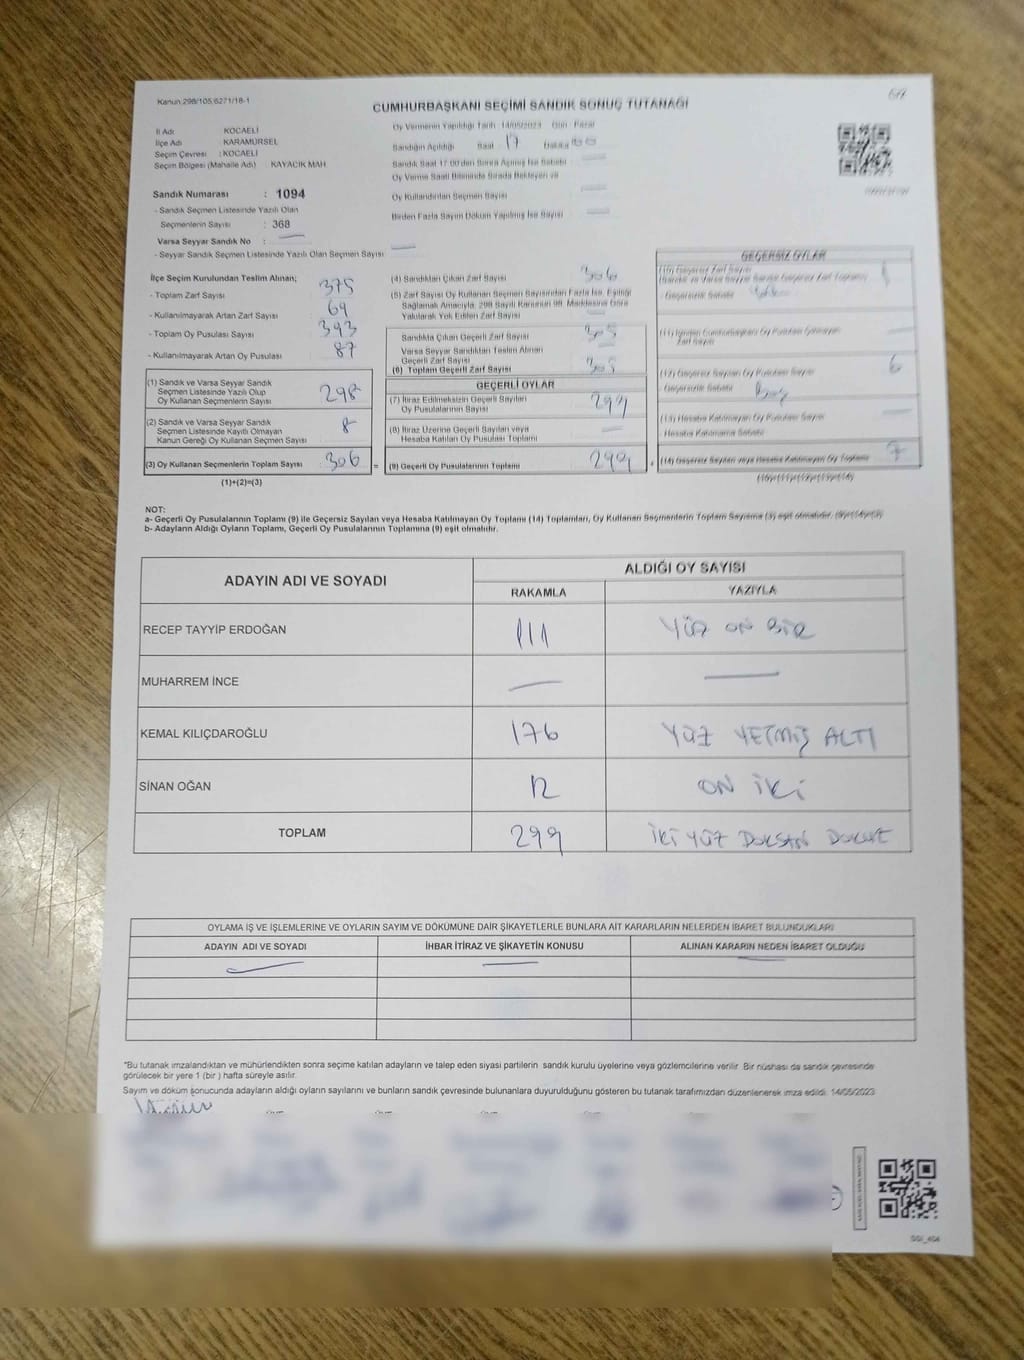 Kanun 298/105,6271/18-1
CUMHURBAŞKANI SEÇİMİ SANDIK SONUÇ TUTANAĞI
İl Adı : KOCAELİ
İlçe Adı : KARAMÜRSEL
Seçim Çevresi : KOCAELİ
Seçim Bölgesi (Mahalle Adı) KAYACIK MAH
Sandık Numarası : 1094
- Sandık Seçmen Listesinde Yazılı Olan
Seçmenlerin Sayısı : 368
Varsa Seyyar Sandık No : —
- Seyyar Sandık Seçmen Listesinde Yazılı Olan Seçmen Sayısı —
Oy Vermenin Yapıldığı Tarih 14/05/2023 Gün Pazar
Sandığın Açıldığı Saat 17 Dakika
Sandık Saat 17:00'den Sonra Açılmış İse Sebebi —
Oy Verme Saati Bitiminde Sırada Bekleyen ve
Oy Kullandırılan Seçmen Sayısı —
Birden Fazla Sayım Döküm Yapılmış İse Sayısı —
İlçe Seçim Kurulundan Teslim Alınan;
- Toplam Zarf Sayısı 375
- Kullanılmayarak Artan Zarf Sayısı 69
- Toplam Oy Pusulası Sayısı 393
- Kullanılmayarak Artan Oy Pusulası 87
(1) Sandık ve Varsa Seyyar Sandık
Seçmen Listesinde Yazılı Olup
Oy Kullanan Seçmenlerin Sayısı 298
(2) Sandık ve Varsa Seyyar Sandık
Seçmen Listesinde Kayıtlı Olmayan
Kanun Gereği Oy Kullanan Seçmen Sayısı 8
(3) Oy Kullanan Seçmenlerin Toplam Sayısı 306
(1)+(2)=(3)
(4) Sandıktan Çıkan Zarf Sayısı 306
(5) Zarf Sayısı Oy Kullanan Seçmen Sayısından Fazla İse, Eşitliği
Sağlamak Amacıyla, 298 Sayılı Kanunun 98. Maddesine Göre
Yakılarak Yok Edilen Zarf Sayısı —
Sandıkta Çıkan Geçerli Zarf Sayısı 305
Varsa Seyyar Sandıktan Teslim Alınan
Geçerli Zarf Sayısı —
(6) Toplam Geçerli Zarf Sayısı 305
GEÇERLİ OYLAR
(7) İtiraz Edilmeksizin Geçerli Sayılan
Oy Pusulalarının Sayısı 299
(8) İtiraz Üzerine Geçerli Sayılan veya
Hesaba Katılan Oy Pusulası Toplamı —
= (9) Geçerli Oy Pusulalarının Toplamı 299
GEÇERSİZ OYLAR
(10) Geçersiz Zarf Sayısı
(Sandık ve Varsa Seyyar Sandık Geçersiz Zarf Toplamı) 1
- Geçersizlik Sebebi
Zarf Sayısı —
(12) Geçersiz Sayılan Oy Pusulası Sayısı 6
Geçersizlik Sebebi
(13) Hesaba Katılmayan Oy Pusulası Sayısı —
Hesaba Katılmama Sebebi
+ (14) Geçersiz Sayılan veya Hesaba Katılmayan Oy Toplamı 7
NOT:
a- Geçerli Oy Pusulalarının Toplamı (9) ile Geçersiz Sayılan veya Hesaba Katılmayan Oy Toplamı (14) Toplamları, Oy Kullanan Seçmenlerin Toplam Sayısına (3) eşit olmalıdır. (9)+(14)=(3)
b- Adayların Aldığı Oyların Toplamı, Geçerli Oy Pusulalarının Toplamına (9) eşit olmalıdır.
ADAYIN ADI VE SOYADI
ALDIĞI OY SAYISI
RAKAMLA YAZIYLA
RECEP TAYYİP ERDOĞAN 111 YÜZ ON BİR
MUHARREM İNCE — —
KEMAL KILIÇDAROĞLU 176 YÜZ YETMİŞ ALTI
SİNAN OĞAN 12 ON İKİ
TOPLAM 299 İKİ YÜZ DOKSAN DOKUZ
OYLAMA İŞ VE İŞLEMLERİNE VE OYLARIN SAYIM VE DÖKÜMÜNE DAİR ŞİKAYETLERLE BUNLARA AİT KARARLARIN NELERDEN İBARET BULUNDUKLARI
ADAYIN ADI VE SOYADI İHBAR İTİRAZ VE ŞİKAYETİN KONUSU ALINAN KARARIN NEDEN İBARET OLDUĞU
— — —
*Bu tutanak imzalandıktan ve mühürlendikten sonra seçime katılan adayların ve talep eden siyasi partilerin sandık kurulu üyelerine veya gözlemcilerine verilir. Bir nüshası da sandık çevresinde
görülecek bir yere 1 (bir ) hafta süreyle asılır.
Sayım ve döküm sonucunda adayların aldığı oyların sayılarını ve bunların sandık çevresinde bulunanlara duyurulduğunu gösteren bu tutanak tarafımızdan düzenlenerek imza edildi. 14/05/2023